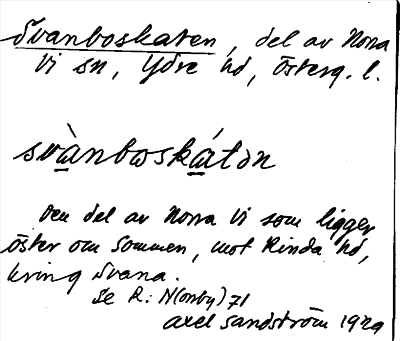 Svanboskaten, del av Norra
Vi sn, Ydre hd, Österg. l.
svànbωskátən
Den del av Norra Vi som ligger
öster om Sommen, mot Kinda hd,
kring Svana.
Se R: N(orby) 71
Axel Sandström 1929